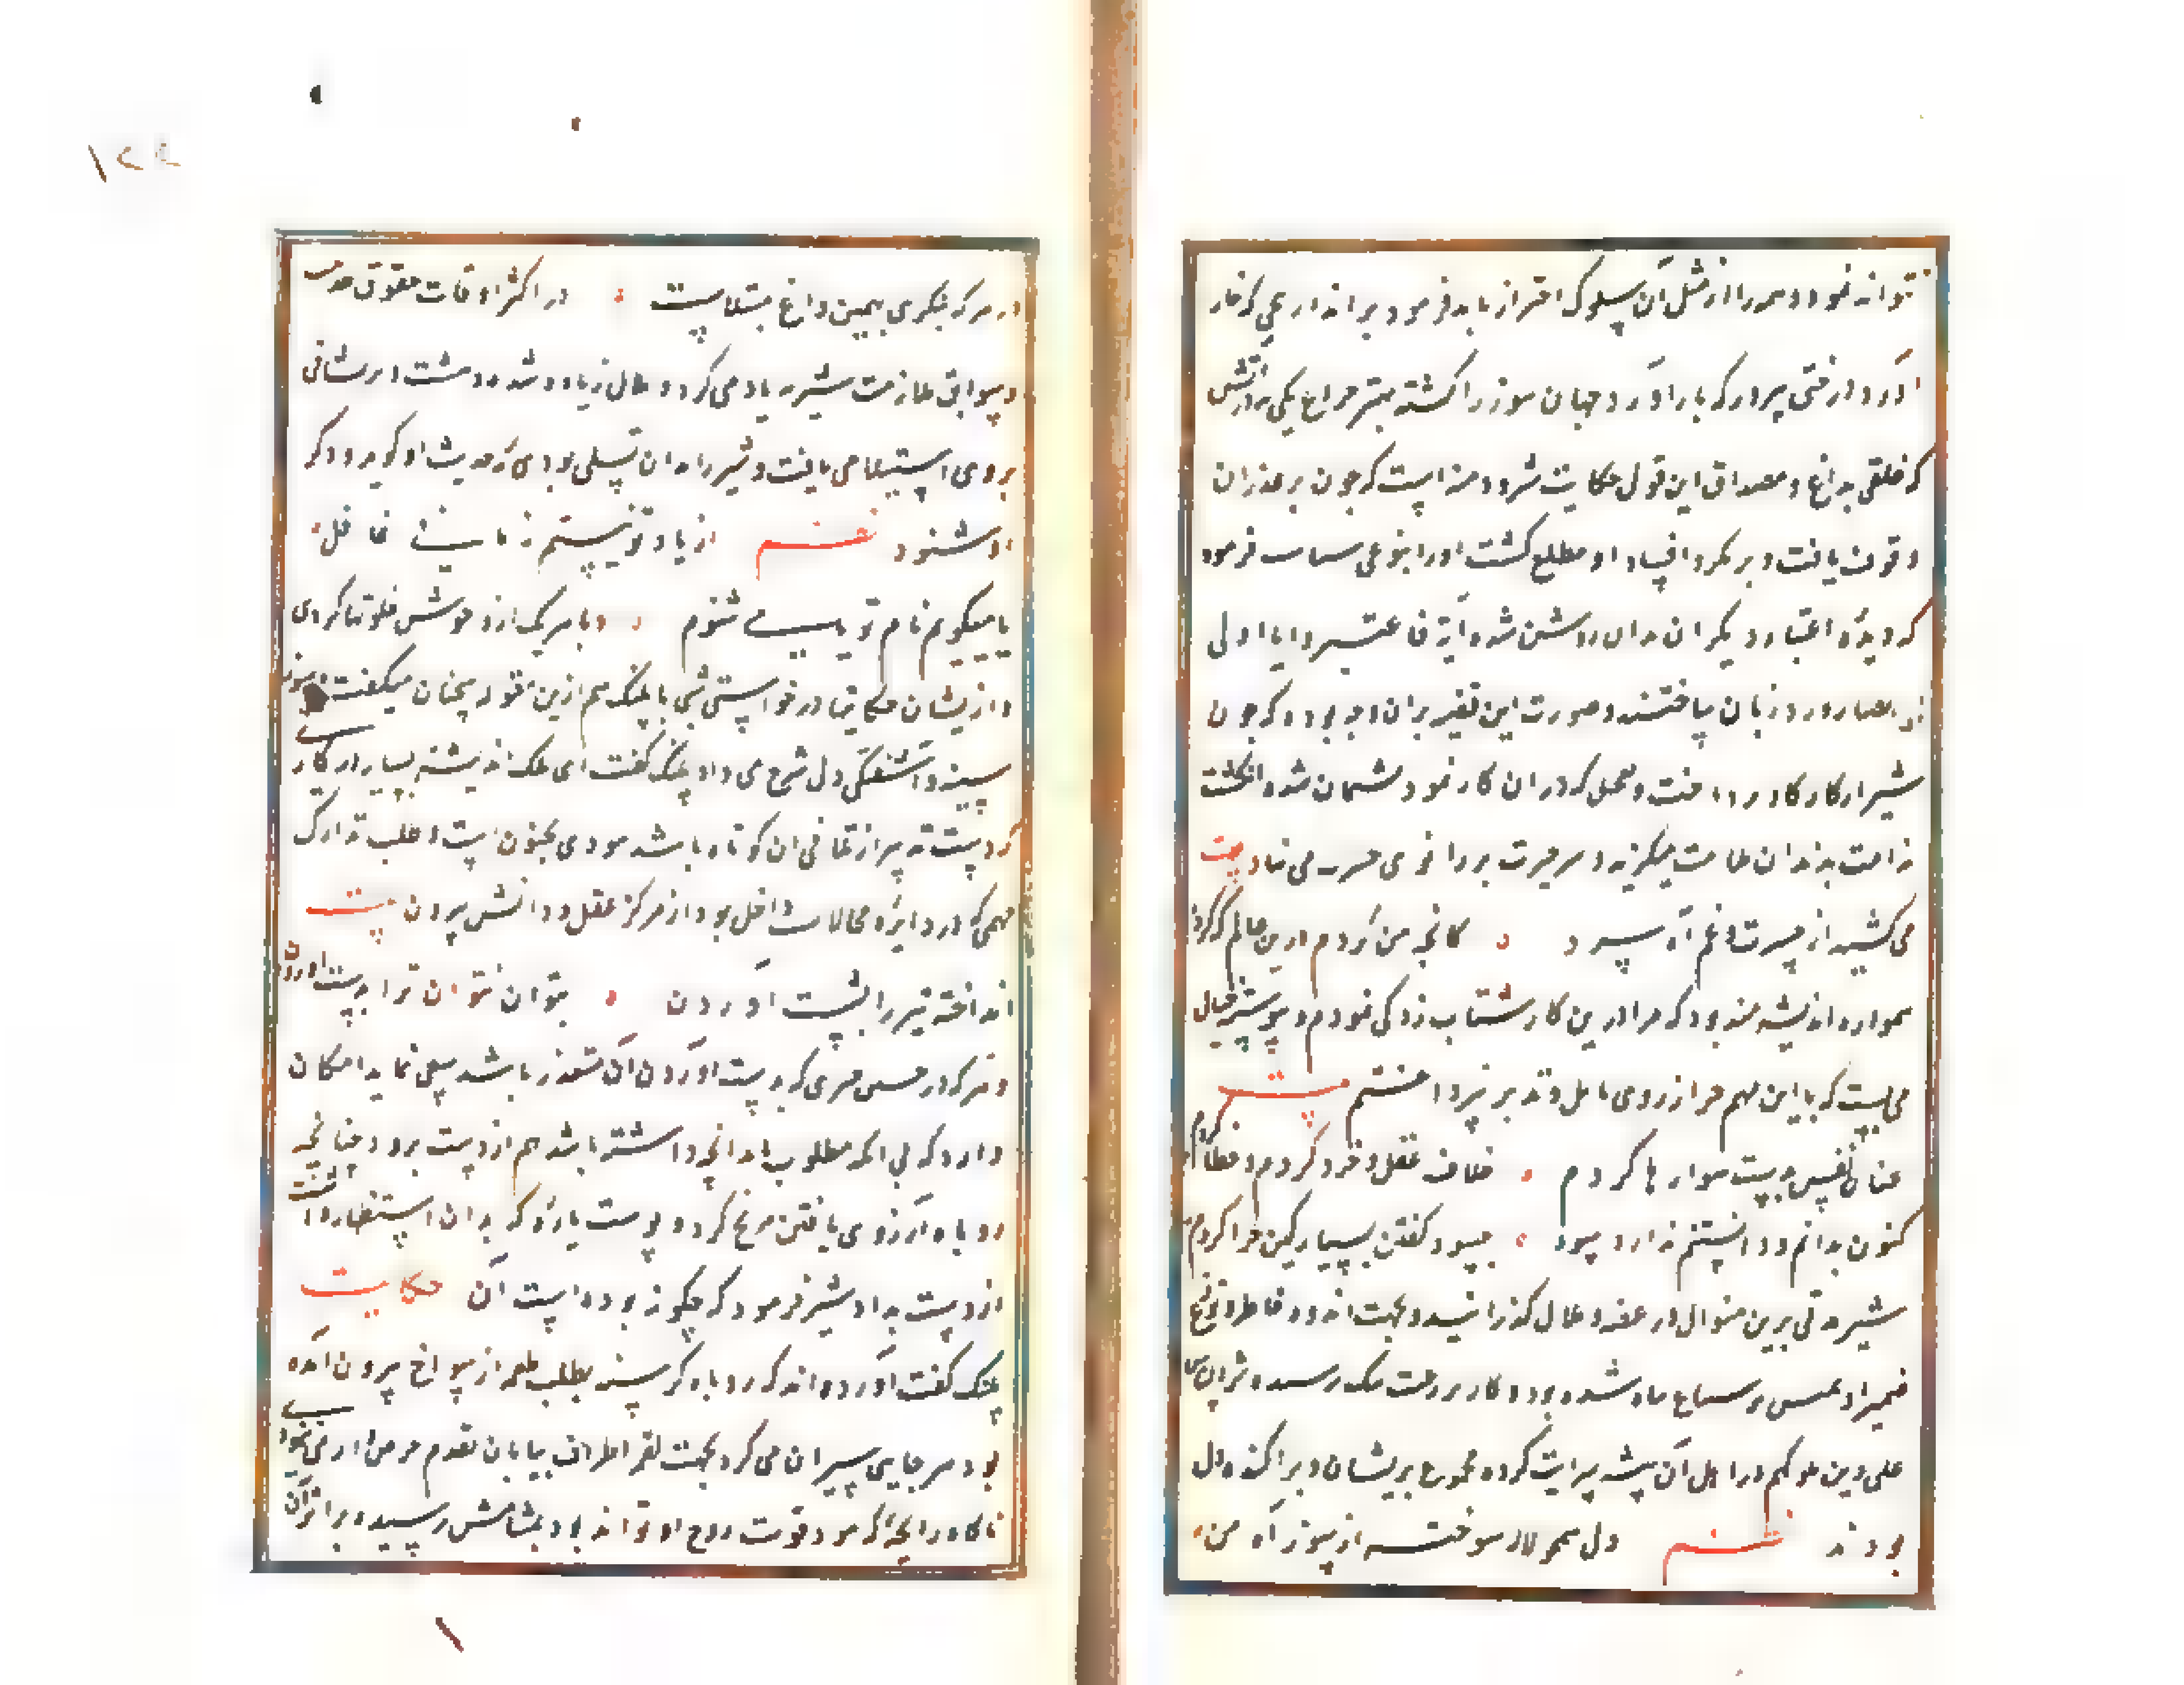 نتواند نمود و خود را از مثل آن سلوک احتراز باید فرمود براندازبیخی که خار
آورد درختی پرور که بار آورد جهان سوز را کشته بهتر چراغ یکی به در آتش
که خلقی بداغ و مصداق این قول حکایت شیر و دمنه است که چون بر عذر آن
وقوف یافت و بر مکر و افساد او مطلع گشت او را بنوعی سیاست فرمود
که دیدهٔ اعتبار دیگران بدان روشن شد و آیهٔ فاعتبروا یا اولی
الابصار ورد زبان ساختند و صورت این قضیه بران وجه بود که چون
شیر از کار گاو بپرداخت و بتعجیلی که در ان کار نمود پشیمان شد و انگشت
ندامت بدندان ملامت میگزید و سر حیرت بر زانوی حسرت می نهاد بیت
می کشید از حسرت و غم آه سرد کانچه من کردم درین عالم که کرد
همواره اندیشه مند بود که چرا درین کار شتاب زدگی نمودم و پیوسته خیال
می بست که با این مهم چرا از روی تأمل و تدبر نپرداختم بیت
عنان نفس بدست هوا رها کردم خلاف عقل و خرد کردم و خطا کردم
کنون بدانم و دانستنم ندارد سود چه سود گفتن بسیار کین چرا کردم
شیر مدتی برین منوال در غصه و ملال گذرانید و بجهت اندوه خاطر و توزع
ضمیر او عیش بر سباع تباه شده بود و کار بر رعیت تنگ رسیده و سران
علی دین ملوکهم در اهل آن بیشه سرایت کرده مجموع پریشان و پراکنده دل
بودند نظم دل همچو لاله سوخته از سوز آه من
در هر که بنگری بهمین داغ مبتلاست در اکثر اوقات حقوق خدمت
و سوابق ملازمت شنزبه یاد می کرد و ملال زیاده شده وحشت و پریشانی
بر وی استیلا می یافت و شیر را بدان تسلی بودی که حدیث او گوید و ذکر
او شنود نظم از یاد تو نیستم زمانی غافل
یا میگویم نام تو یا می شنوم و با هر یک از وحوش خلوتها کردی
و از یشان حکایتها درخواستی شبی با پلنگ هم ازین مقوله سخنان میگفت و سوز
سینه و آشفتگی دل شرح می داد پلنگ گفت ای ملک اندیشهٔ بسیار در کاری
که دست تدبیر از تلافی آن کوتاه باشد مودی بجنون است و طلب تدارک
مهمی که در دایرهٔ محالات داخل بود از مرکز عقل و دانش بیرون بیت
انداخته تیر را بشست آوردن بتوان نتوان ترا بدست آوردن
و هر که در جستن چیزی که بدست آوردن آن متعذر باشد سعی نماید امکان
دارد که بی آنکه مطلوب یابد آنچه داشته باشد هم از دست برود چنانچه
روباه آرزوی یافتن مرغ کرد و پوست پارهٔ که بدان استظهار داشت
از دست بداد شیر فرمود که چگونه بوده است آن حکایت
پلنگ گفت آورده اند که روباه گرسنه بطلب طعمه از سوراخ بیرون آمده
بود هر جایی سیران می کرد بجهت لقمهٔ اطراف بیابان بقدم حرص و آز می پیمود
ناگاه رایحهٔ که موجب قوت روح او تواند بود بمشامش رسید و بر اثر آن